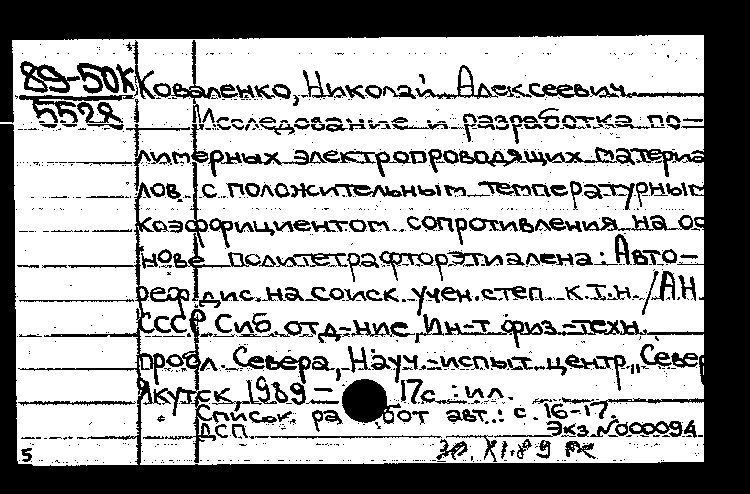 89-50К
5528
Коваленко, Николай Алексеевич.
Исследование и разработка по-
лимерных электропроводящих материа
лов с положительным температурным
коэффициентом сопротивления на ос
нове политетрафторэтиалена: Авто-
реф. дис. на соиск. учен. степ. к.т.н. /АН
СССР. Сиб. отд-ние, Ин-т физ.-техн.
пробл. Севера, Науч.-испыт. центр „Север
Якутск, 1989 – 17с : ил.
Список работ авт.: с. 16-17.
ДСП Экз. №000094
30.XI.89
5